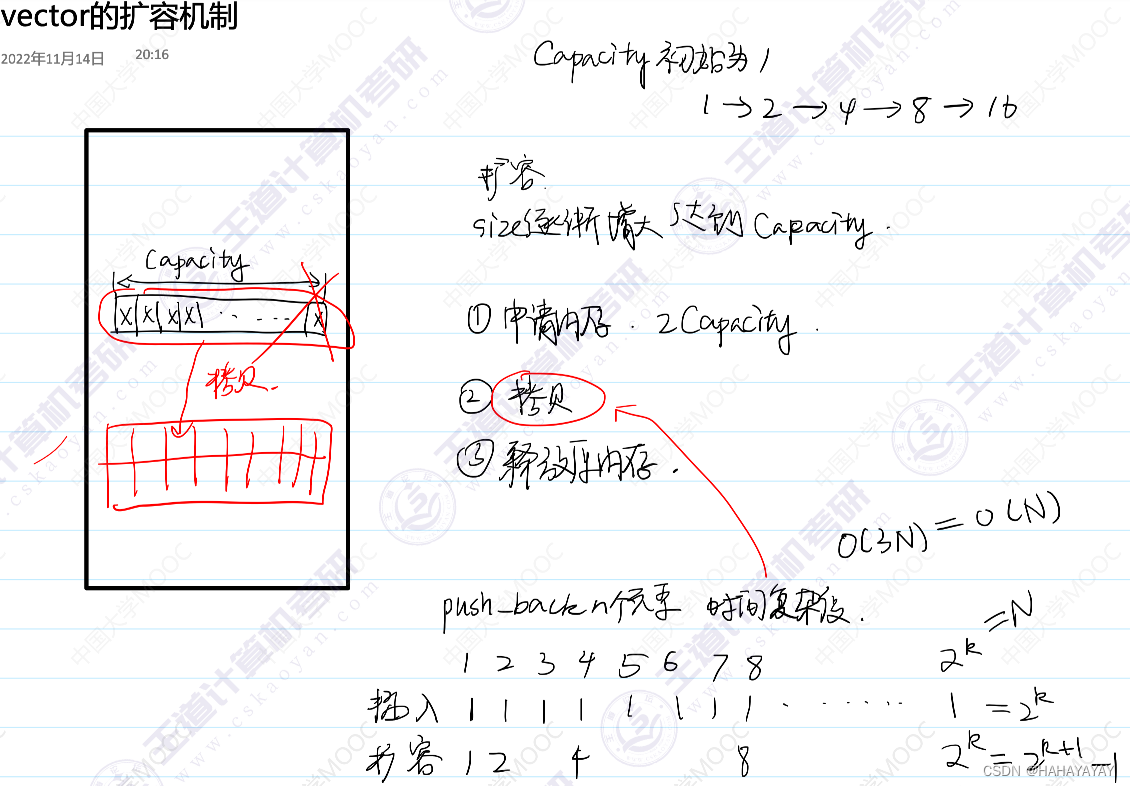 vector的扩容机制
2022年11月14日 20:16
Capacity 初始为 1
1 → 2 → 4 → 8 → 16
扩容
size逐渐增大 达到 Capacity.
Capacity
X X X X · · · · · · X
① 申请内存. 2Capacity.
拷贝.
② 拷贝
③ 释放原内存.
O(3N) = O(N)
push_back n个元素 时间复杂度.
2^k = N
1 2 3 4 5 6 7 8
插入 1 1 1 1 1 1 1 1 · · · · · · · 1 = 2^k
扩容 1 2 4 8 2^k = 2^(k+1) -1
CSDN @HAHAYAYAY
王道计算机考研
www.cskaoyan.com
中国大学MOOC